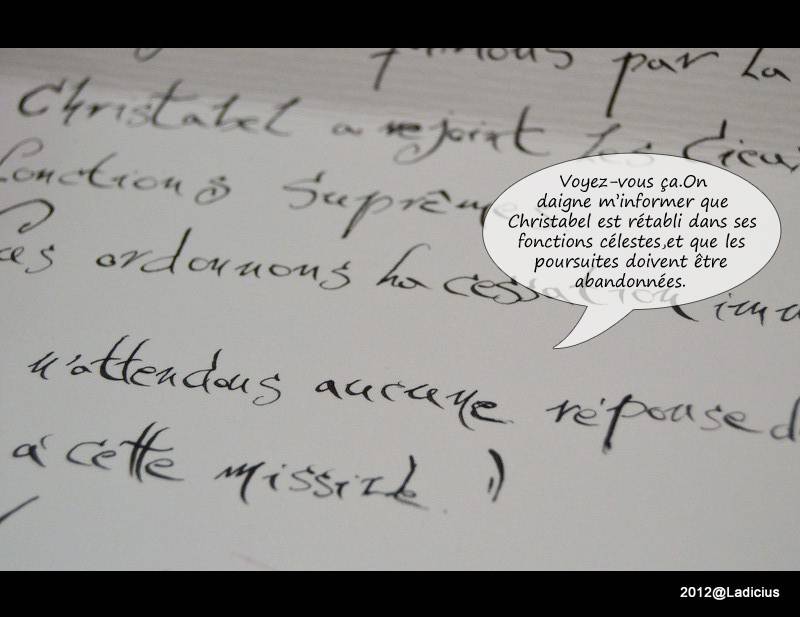 par la
Christabel a rejoint les Cieux
fonctions Suprême
ordonnons la cessation imm
n'attendons aucune réponse d
à cette missive
Voyez-vous ça.On
daigne m'informer que
Christabel est rétabli dans ses
fonctions célestes,et que les
poursuites doivent être
abandonnées.
2012@Ladicius